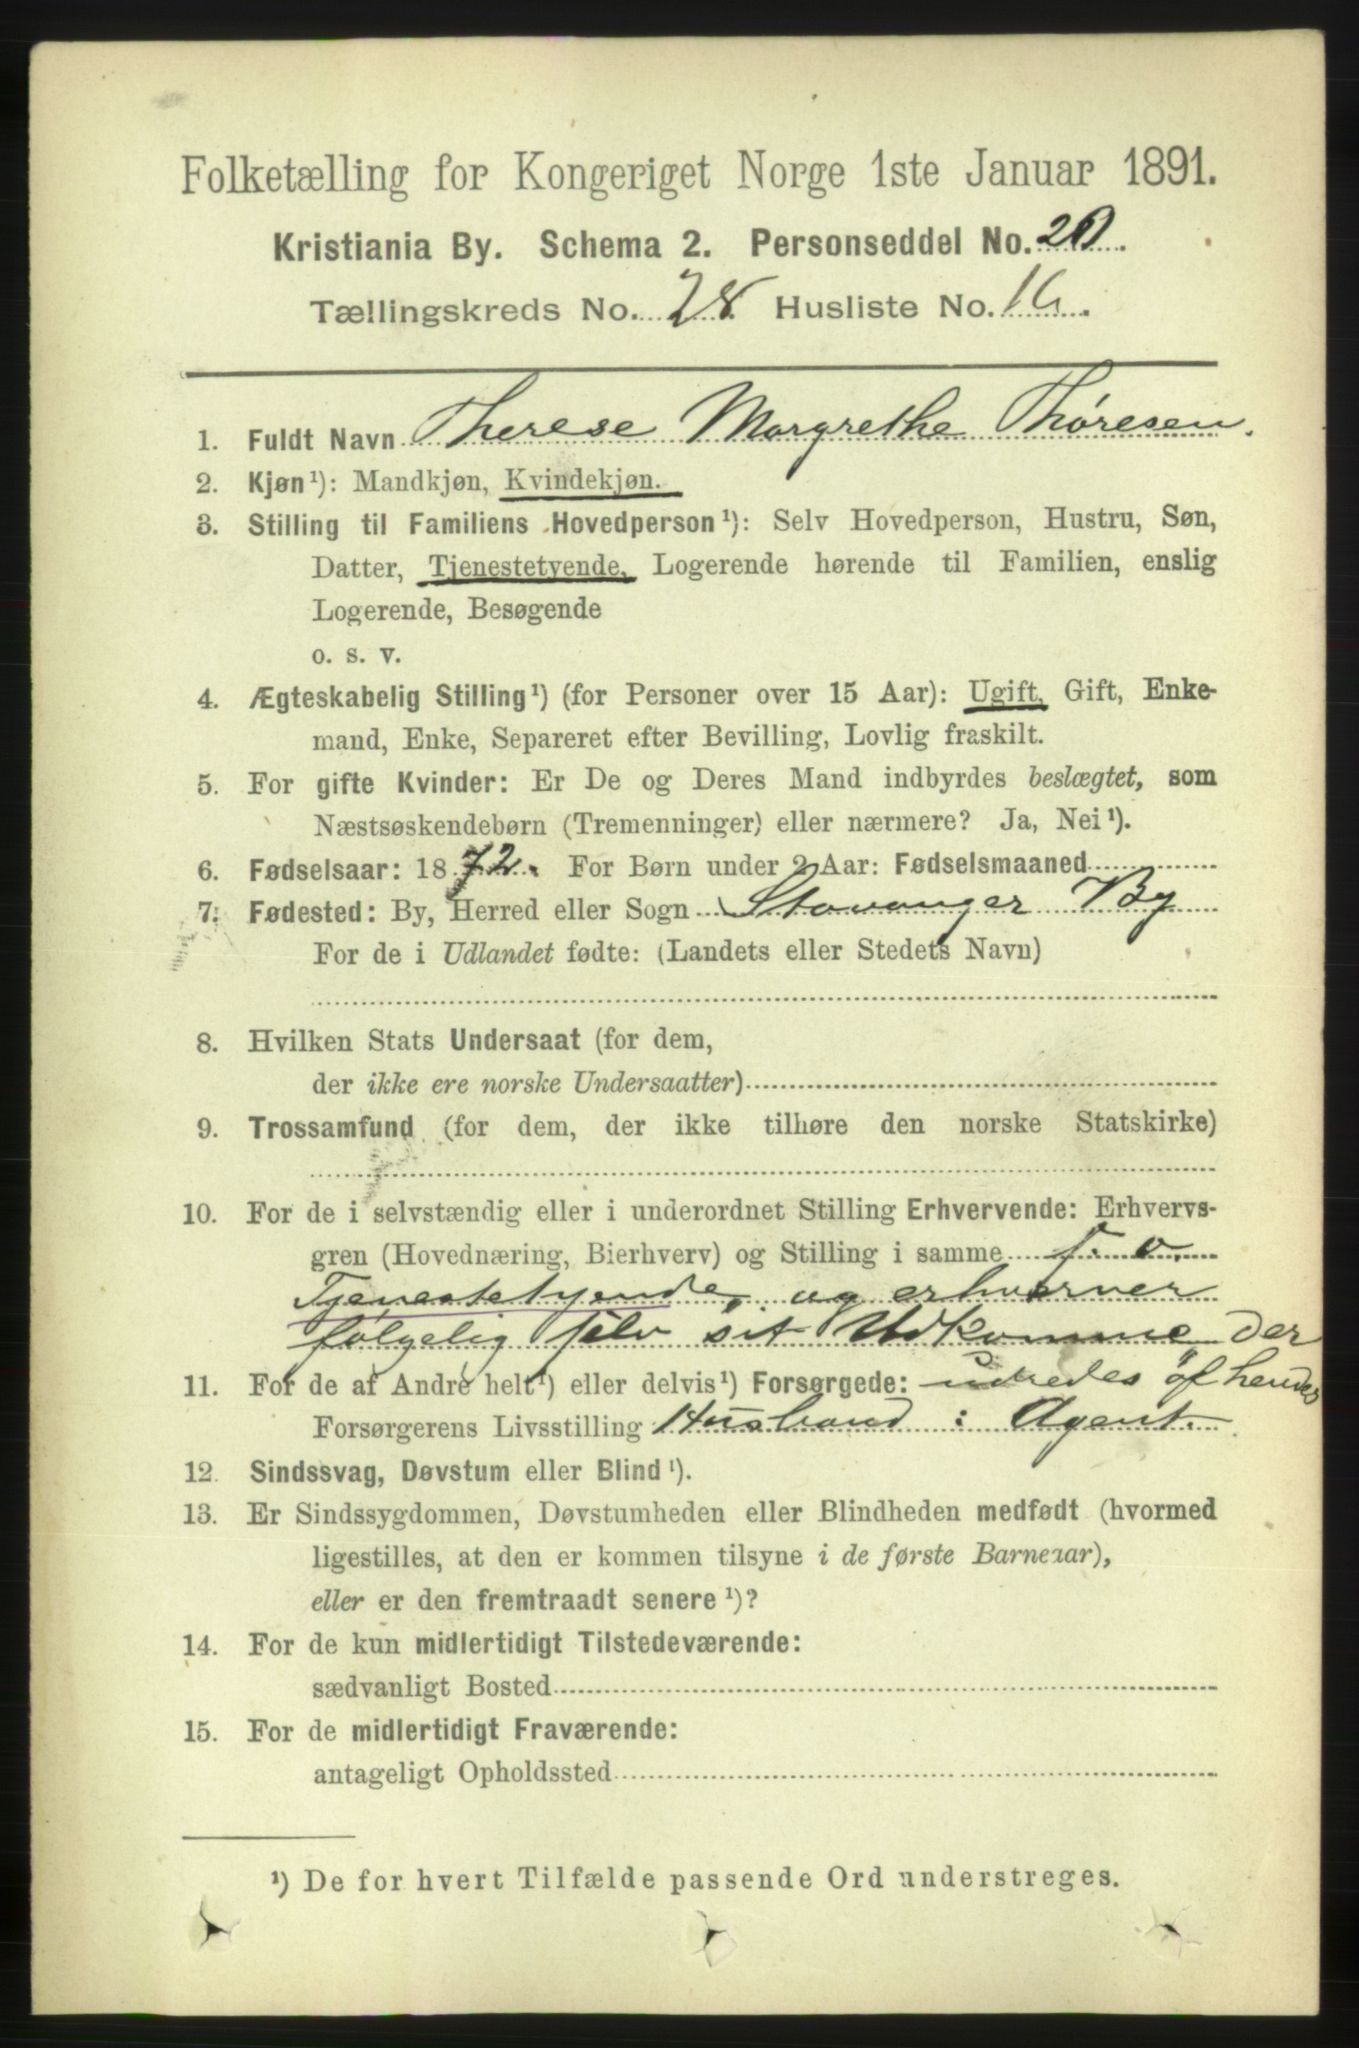 Folketælling for Kongeriget Norge 1ste Januar 1891.
Kristiania By. Schema 2. Personseddel No. 20.
Tællingskreds No. 28. Husliste No. 16.
1. Fuldt Navn Therese Margrethe Thøresen.
2. Kjøn¹): Mandkjøn, Kvindekjøn.
3. Stilling til Familiens Hovedperson¹): Selv Hovedperson, Hustru, Søn,
Datter, Tjenestetyende, Logerende hørende til Familien, enslig
Logerende, Besøgende
o. s. v.
4. Ægteskabelig Stilling¹) (for Personer over 15 Aar): Ugift, Gift, Enke-
mand, Enke, Separeret efter Bevilling, Lovlig fraskilt.
5. For gifte Kvinder: Er De og Deres Mand indbyrdes beslægtet, som
Næstsøskendebørn (Tremenninger) eller nærmere? Ja, Nei¹).
6. Fødselsaar: 1872. For Børn under 2 Aar: Fødselsmaaned
7. Fødested: By, Herred eller Sogn Stavanger By
For de i Udlandet fødte: (Landets eller Stedets Navn)
8. Hvilken Stats Undersaat (for dem,
der ikke ere norske Undersaatter)
9. Trossamfund (for dem, der ikke tilhøre den norske Statskirke)
10. For de i selvstændig eller i underordnet Stilling Erhvervende: Erhvervs-
gren (Hovednæring, Bierhverv) og Stilling i samme f. o.
Tjenestetyende, og erhverver
følgelig selv sit Udkomme der
11. For de af Andre helt¹) eller delvis¹) Forsørgede: udredes af hendes
Forsørgerens Livsstilling Husbond: Agent.
12. Sindssvag, Døvstum eller Blind¹).
13. Er Sindssygdommen, Døvstumheden eller Blindheden medfødt (hvormed
ligestilles, at den er kommen tilsyne i de første Barneaar),
eller er den fremtraadt senere¹)?
14. For de kun midlertidigt Tilstedeværende:
sædvanligt Bosted
15. For de midlertidigt Fraværende:
antageligt Opholdssted
¹) De for hvert Tilfælde passende Ord understreges.